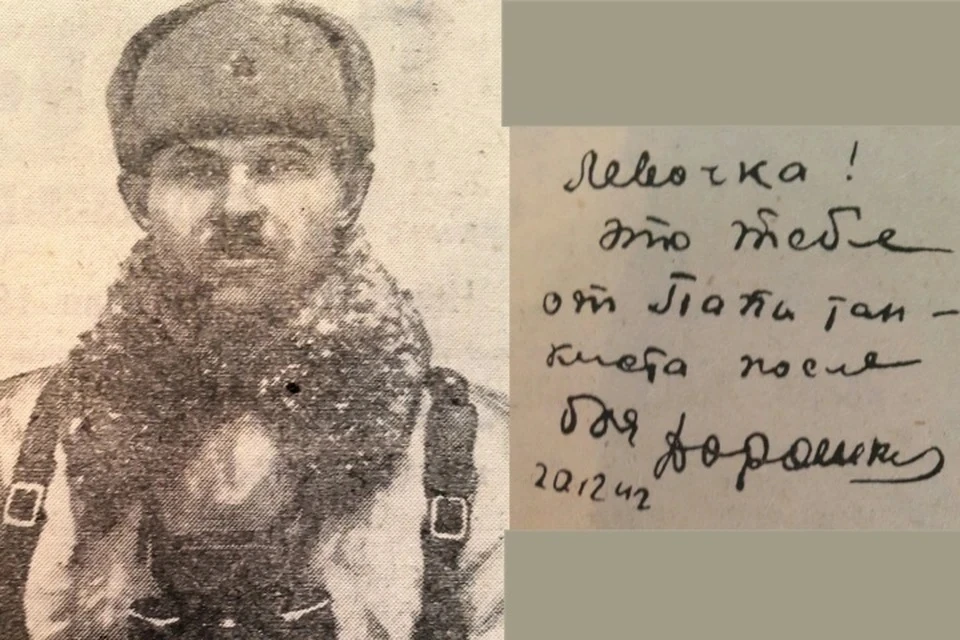 Левочка!
это тебе
от Папы тан-
киста после
боя Дорошкев
20.12 42